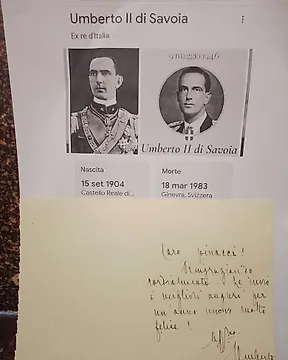 Umberto II di Savoia
Ex re d'Italia
9 maggio 1946
Umberto II di Savoia
Nascita
15 set 1904
Castello Reale di...
Morte
18 mar 1983
Ginevra, Svizzera
Caro
Ringraziando
cordialmente Le invio
i migliori auguri per
un anno nuovo molto
felice!
Aff.mo
Umberto